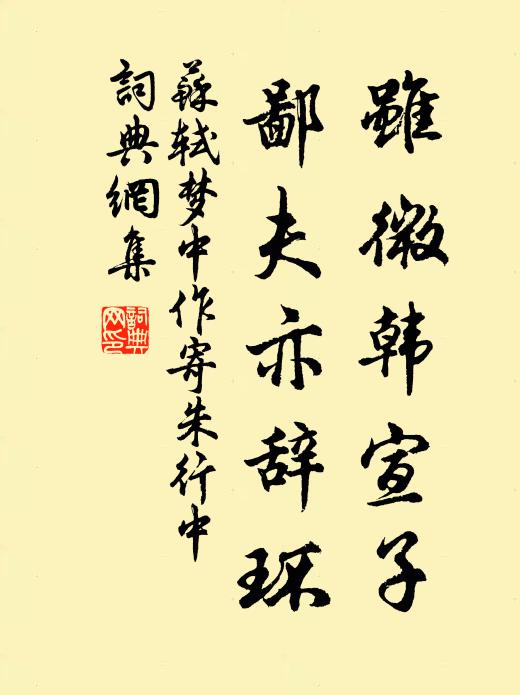 雖微韩宣子
鄙夫亦辞环
蘇轼梦中作寄朱行中
詞典網集
詞典网印